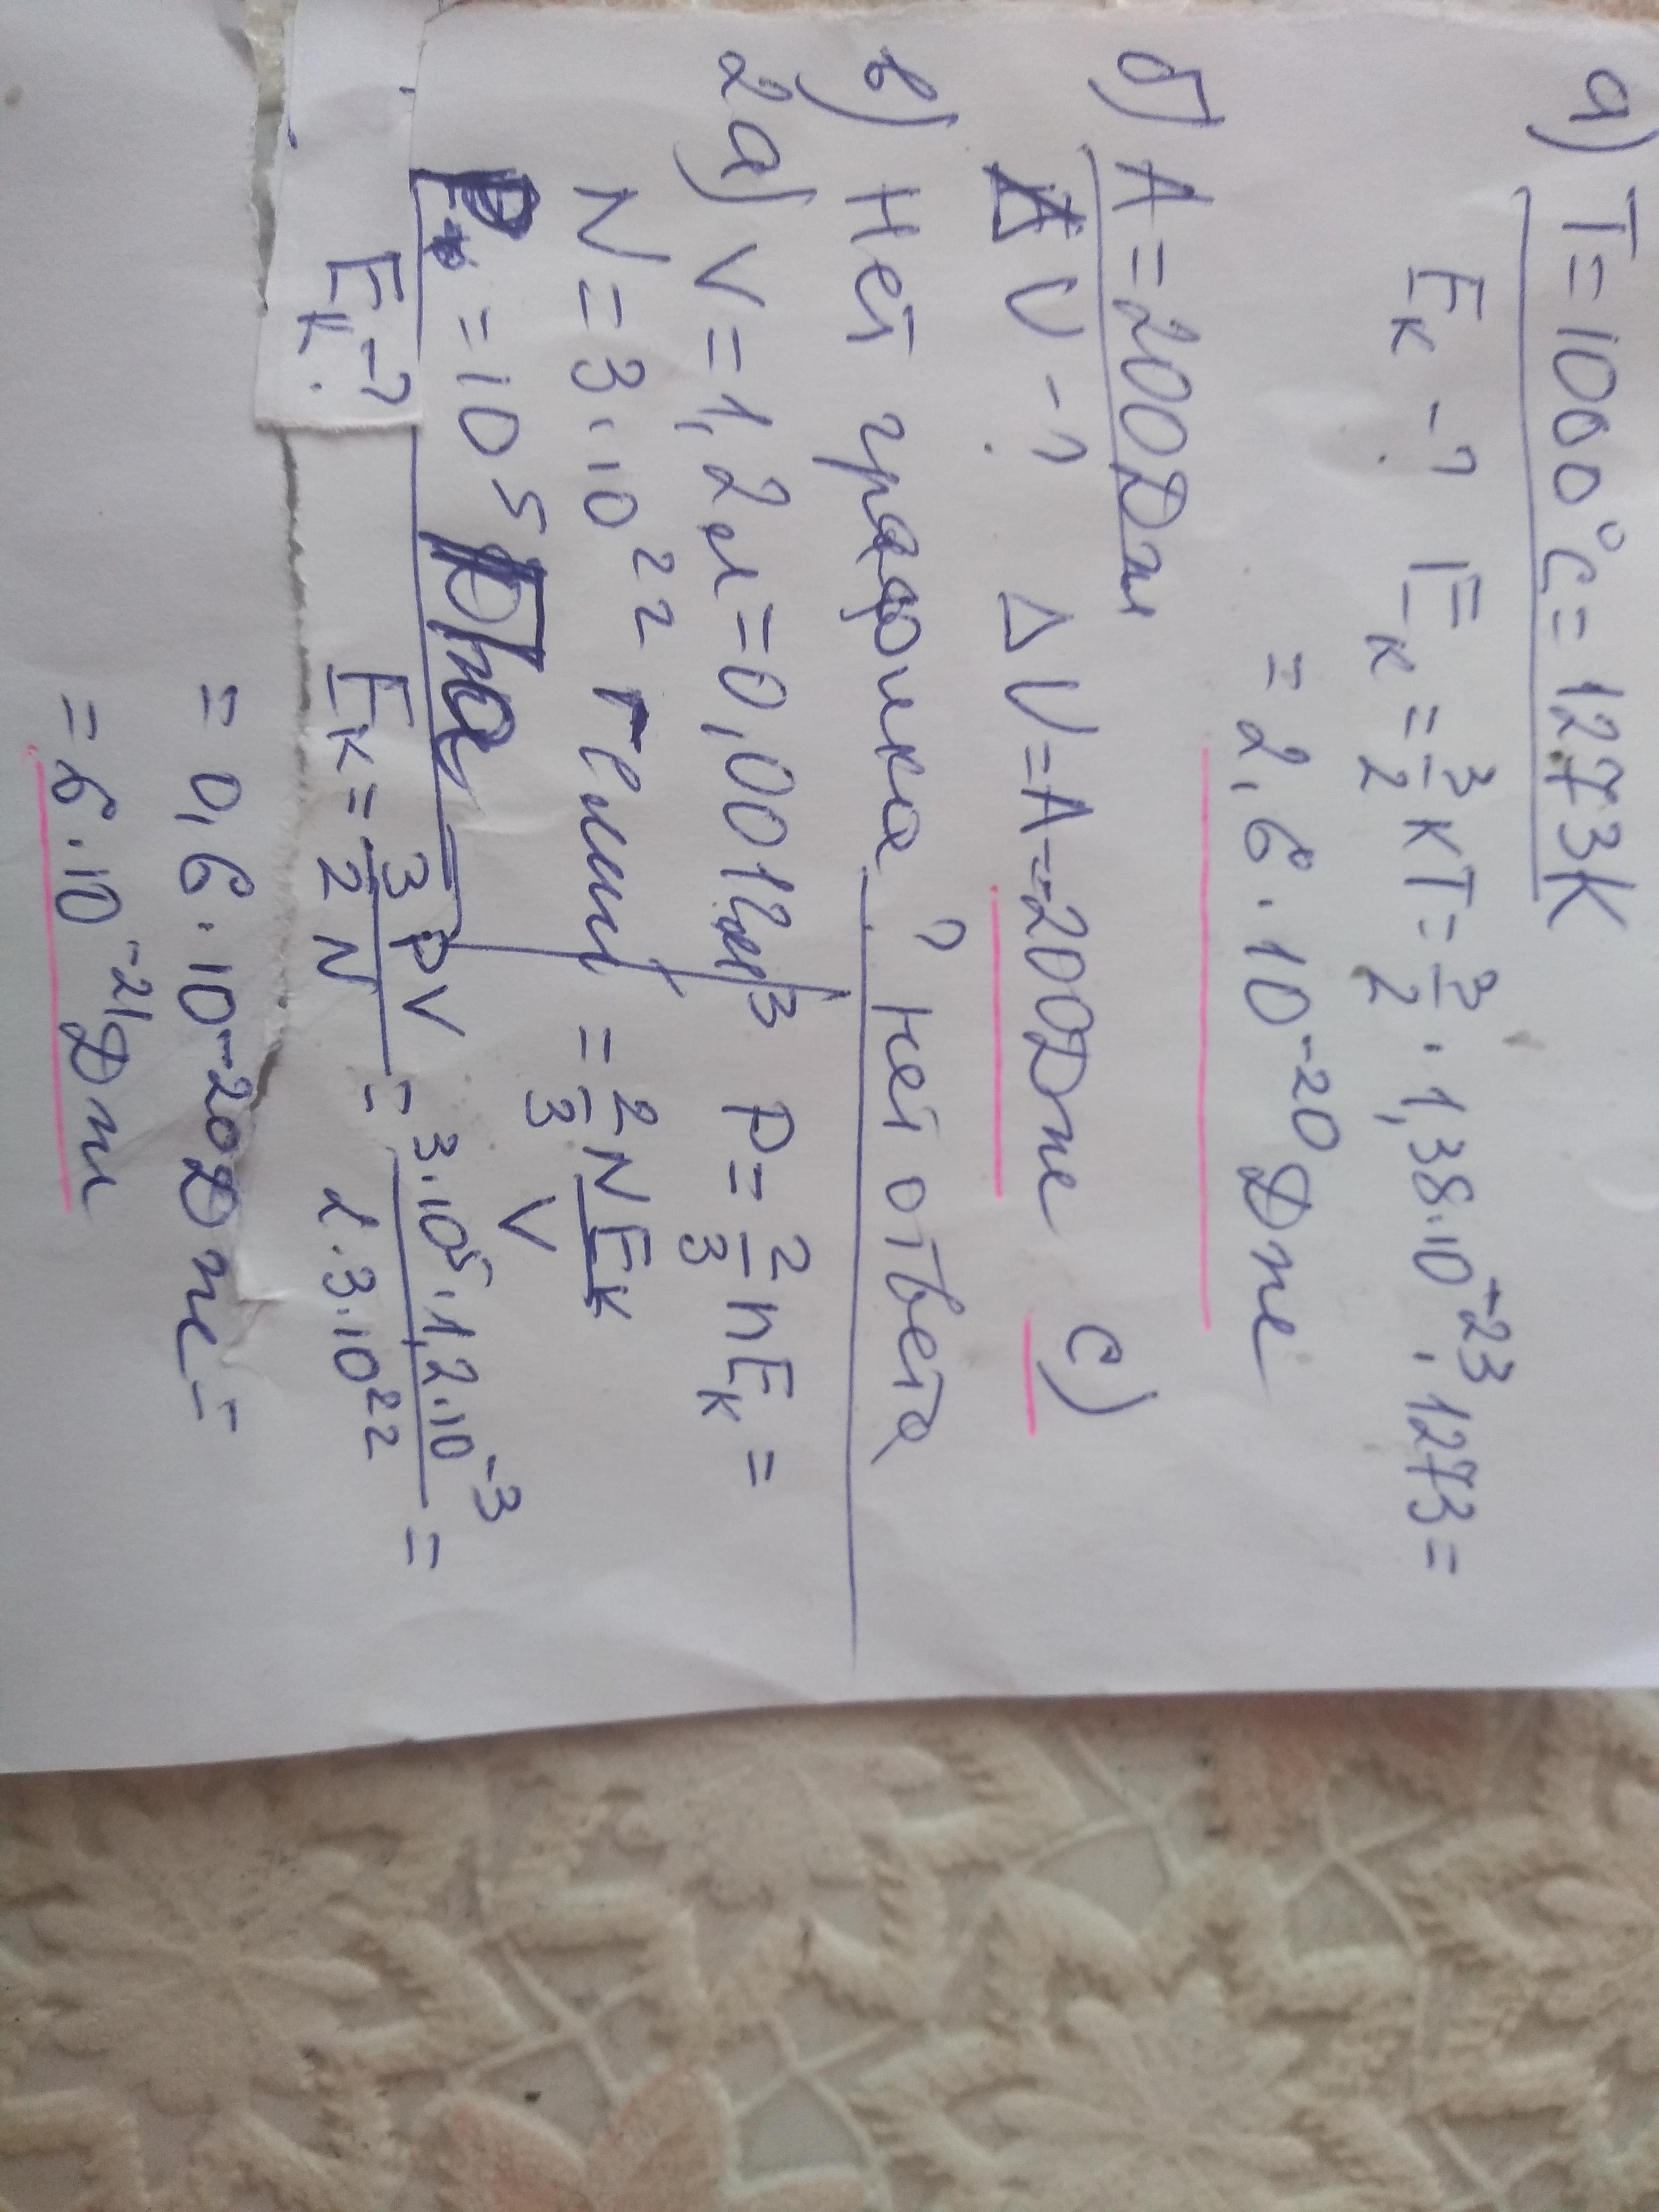 а) T=1000°C=1273K
Eк -? Eк = 3/2 кT = 3/2 · 1,38·10⁻²³ · 1273 =
= 2,6 · 10⁻²⁰ Дж
б) A=200Дж
ΔU -? ΔU=A=200Дж с)
в) Нет графика, ? нет ответа
2а) V=1,2л=0,0012м³ P= 2/3 nEк =
N=3·10²² гелий = 2/3 NEк/V
P = 10⁵ Па
Eк-? Eк= 3/2 PV/N = 3·10⁵·1,2·10⁻³ / 2·3·10²² =
= 0,6·10⁻²⁰Дж =
= 6·10⁻²¹Дж